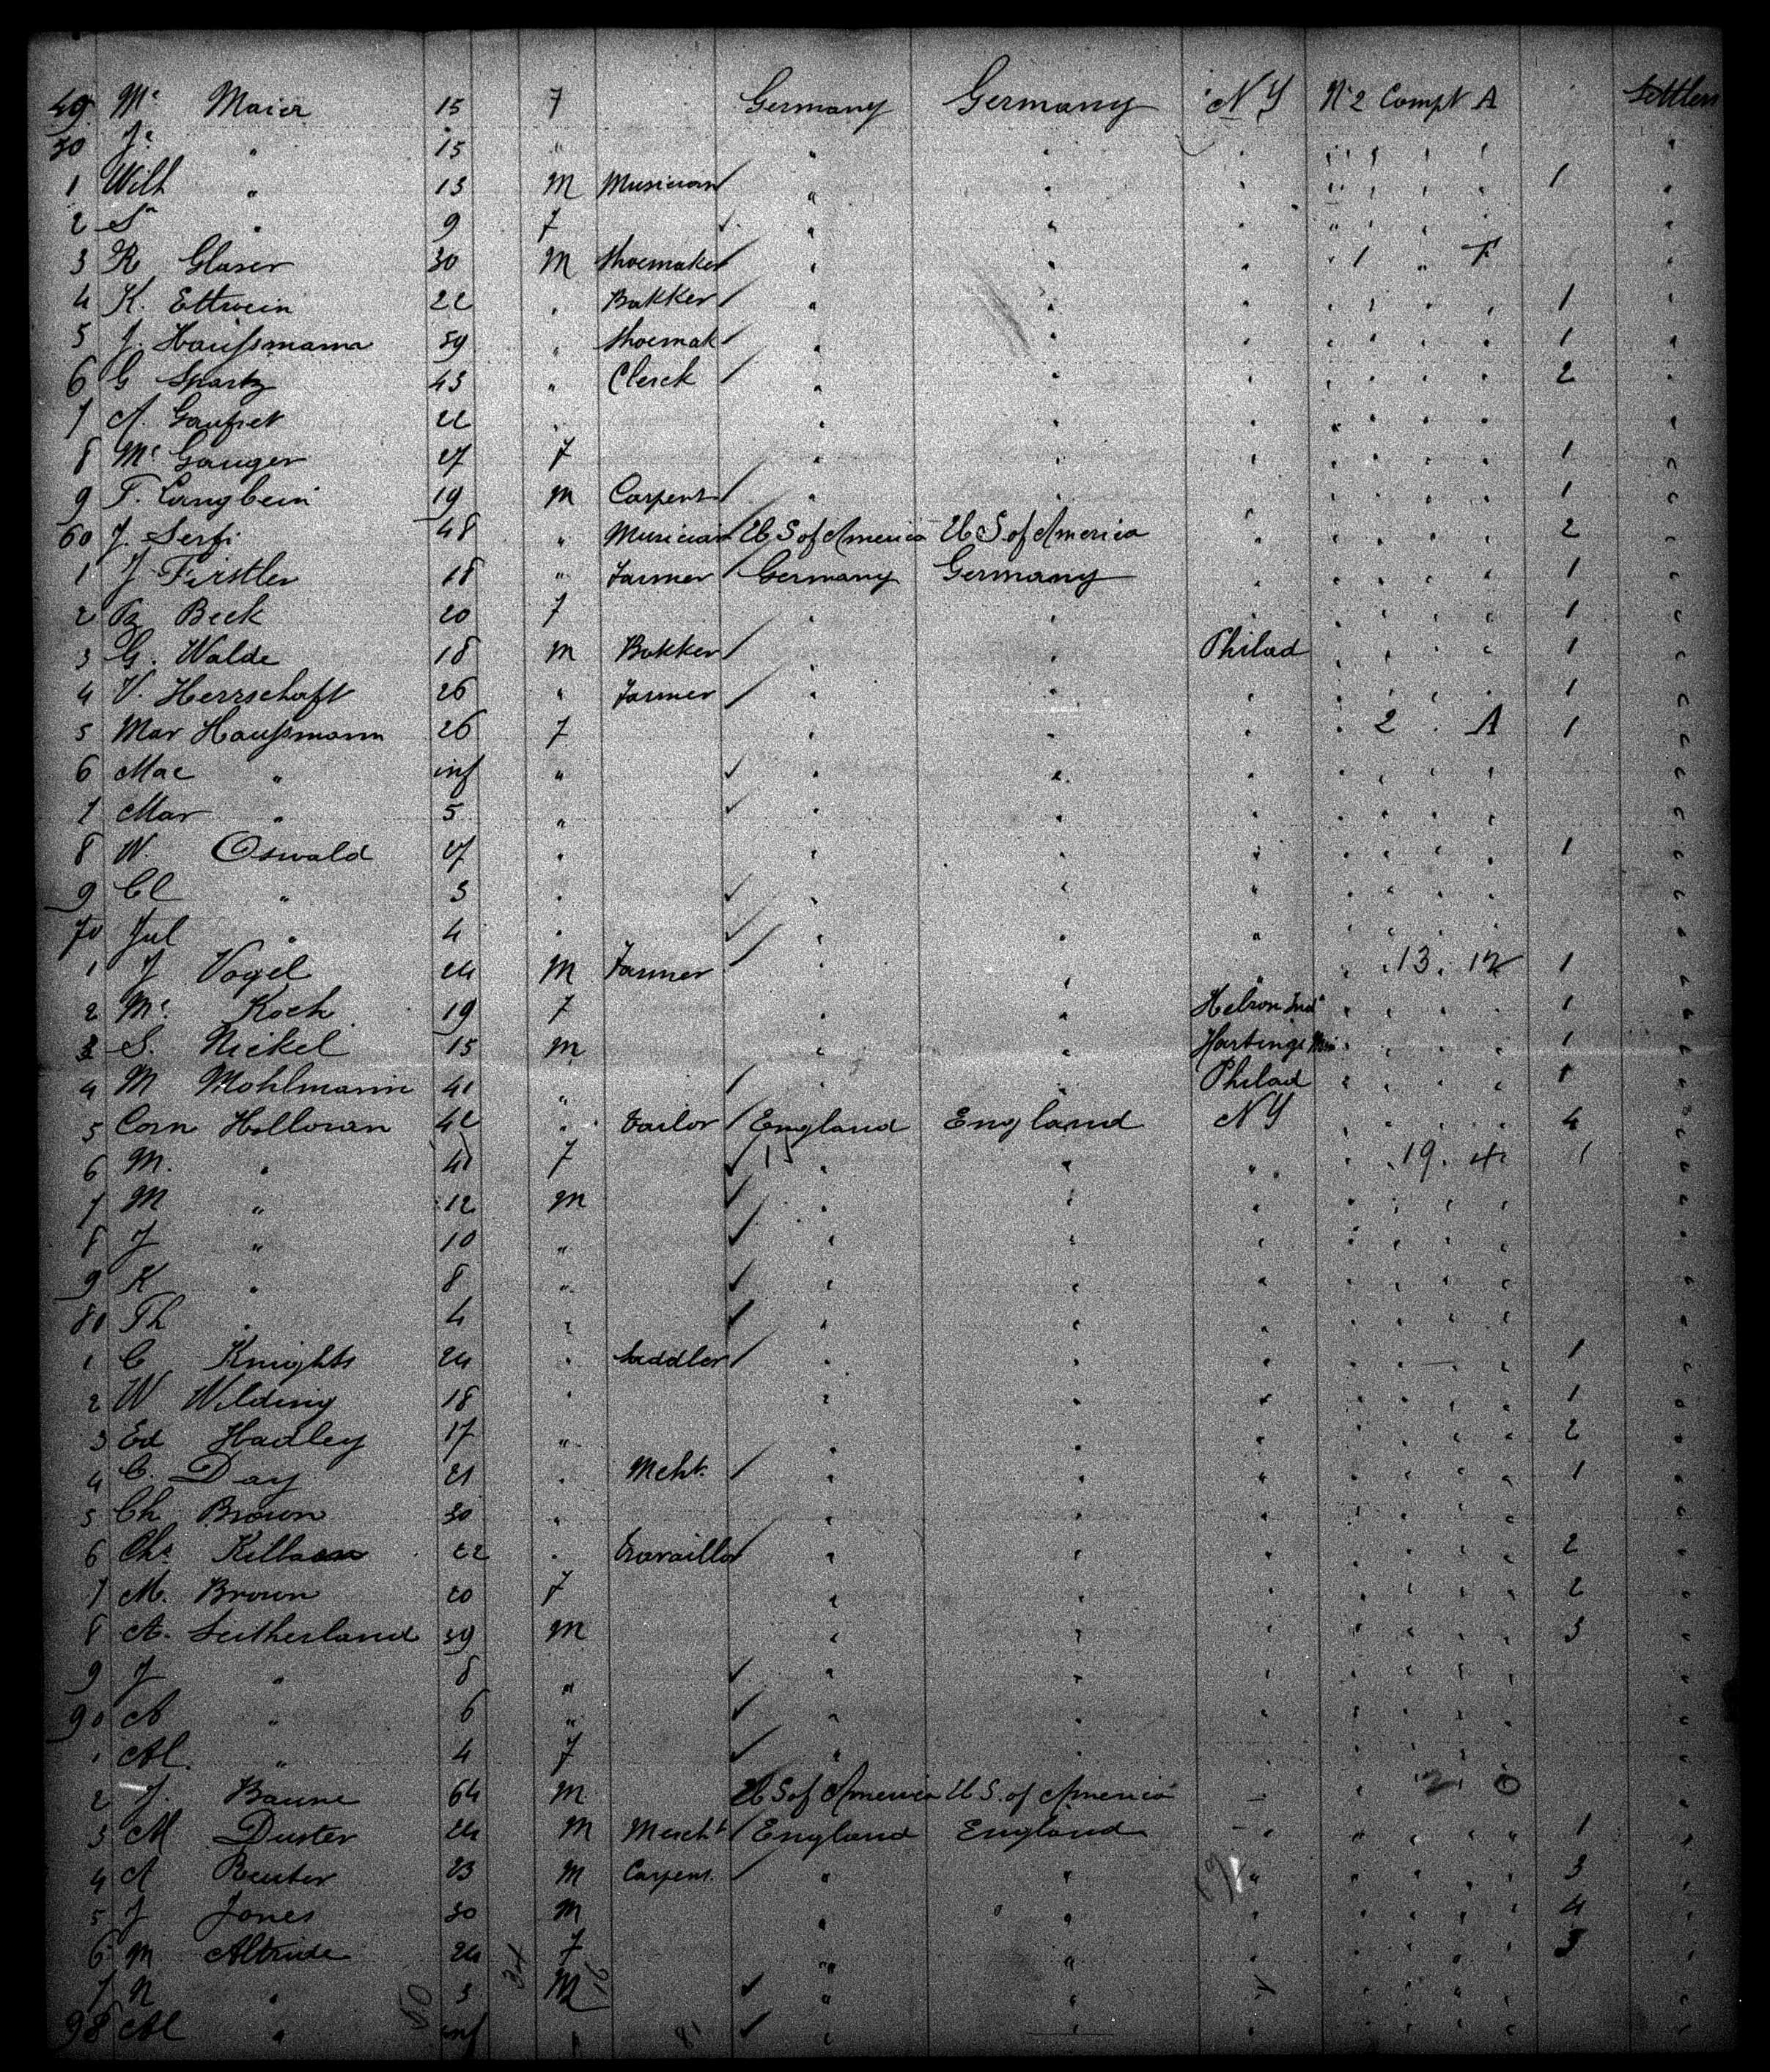 49 Mc Maier 15 F Germany Germany NY No 2 Compt A Settlers
50 Jc " 15 " " " " " " " " "
1 Wilh " 13 M Musician " " " " " " " 1 "
2 Sn " 9 F " " " " " " "
3 R Glaser 30 M Shoemaker " " " " 1 " F "
4 K. Ettwein 22 " Bakker " " " " " " " 1 "
5 J. Hauſsmann 59 " Shoemak " " " " " " " 1 "
6 G Spartz 43 " Clerck " " " " " " " 2 "
7 A. 22 " " " " " " " " "
8 Mc Gauger 27 F " " " " " " " 1 "
9 F. Langbein 19 M Carpent " " " " " " " 1 "
60 J. Serfi 48 " Musician U S of America U S. of America " " " " " 2 "
1 J Firstler 18 " Farmer Germany Germany " " " " " 1 "
2 B Beck 20 F " " " " " " " 1 "
3 G. Walde 18 M Bakker " " Philad " " " " 1 "
4 V. Herrschaft 26 " Farmer " " " " " " " 1 "
5 Mar Hauſsmann 26 F " " " " 2 " A 1 "
6 Mac " inf " " " " " " " " "
7 Mar " 5 " " " " " " " " "
8 W. Oswald 27 " " " " " " " " 1 "
9 Cl " 3 " " " " " " " " "
70 Jul " 4 " " " " " " " " "
1 J Vogel 24 M Farmer " " " " 13 " 12 1 "
2 Mc Koch 19 F " " Hebron Ind " " " " 1 "
3 S. Nickel 15 M " " Hartings " " " " 1 "
4 M Mohlmann 41 " " " Philad " " " " 1 "
5 Corn Holloran 42 " Tailor England England NY " " " " 4 "
6 M. " 41 F " " " " 19 " 4 1 "
7 M " 12 M " " " " " " " "
8 J " 10 " " " " " " " " "
9 K " 8 " " " " " " " " "
80 Th " 4 " " " " " " " " "
1 C Knights 24 " Saddler " " " " " " " 1 "
2 W Wilding 18 " " " " " " " " 1 "
3 Ed Hadley 17 " " " " " " " " 2 "
4 C. Day 21 " Mcht. " " " " " " " 1 "
5 Ch Brown 30 " " " " " " " " "
6 Chs 22 " Travailler " " " " " " " 2 "
7 M. Brown 20 F " " " " " " " 2 "
8 A. Sutherland 39 M " " " " " " " 3 "
9 J " 8 " " " " " " " " "
90 A " 6 " " " " " " " " "
1 Al. " 4 F " " " " " " "
2 J. Baune 64 M U S of America U S. of America " 2 0 "
3 M Duster 24 M Mercht England England " " " " " 1 "
4 A Reuter 23 M Carpent. " " " " " " " 3 "
5 J Jones 30 M " " " " " " " 4 "
6 M Altride 24 F " " " " " " " 3 "
7 N " 3 M " " " " " " " "
98 Al " inf " " " " " " " " "